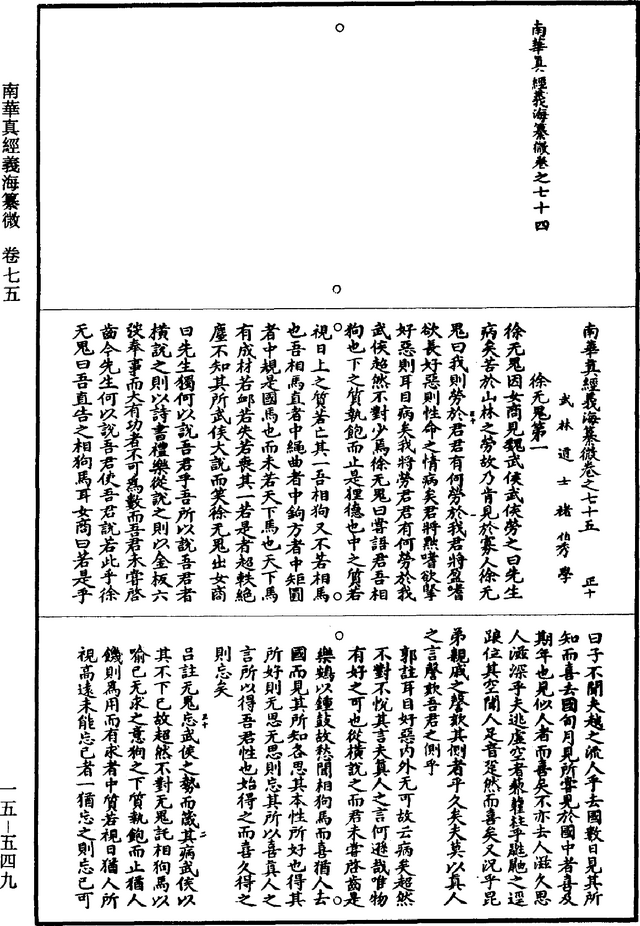 南華真經義海纂微　卷七五
一五—五四九
南華真經義海纂微卷之七十四
南華真經義海纂微卷之七十五　正十
武林道士褚伯秀學
徐无鬼第一
徐无鬼因女商見魏武侯武侯勞之曰先生
病矣苦於山林之勞故乃肯見於寡人徐无
鬼曰我則勞於君君有何勞於我君將盈嗜
欲長好惡則性命之情病矣君將黜嗜欲掔
好惡則耳目病矣我將勞君君有何勞於我
武侯超然不對少焉徐无鬼曰嘗語君吾相
狗也下之質執飽而止是狸德也中之質若
視日上之質若亡其一吾相狗又不若相馬
也吾相馬直者中繩曲者中鉤方者中矩圓
者中規是國馬也而未若天下馬也天下馬
有成材若卹若失若喪其一若是者超軼絕
塵不知其所武侯大說而笑徐无鬼出女商
曰先生獨何以說吾君乎吾所以說吾君者
橫說之則以詩書禮樂從說之則以金板六
弢奉事而大有功者不可為數而吾君未嘗啓
齒今先生何以說吾君使吾君說若此乎徐
无鬼曰吾直告之相狗馬耳女商曰若是乎
曰子不聞夫越之流人乎去國數日見其所
知而喜去國旬月見所嘗見於國中者喜及
期年也見似人者而喜矣不亦去人滋久思
人滋深乎夫逃虛空者藜藋柱乎鼪鼬之逕
踉位其空聞人足音跫然而喜矣又況乎昆
弟親戚之謦欬其側者乎久矣夫莫以真人
之言謦欬吾君之側乎
郭註耳目好惡內外无可故云病矣超然
不對不悅其言夫真人之言何遜哉唯物
有好之可也從橫說之而君未嘗啓齒是
樂鴳以鐘鼓故愁聞相狗馬而喜猶人去
國而見其所知各思其本性所好也得其
所好則无思无思則忘其所以喜真人之
言所以得吾君性也始得之而喜久得之
則忘矣
呂註无鬼忘武侯之勢而箴其病武侯以
其不下已故超然不對无鬼託相狗馬以
喻已无求之意狗之下質執飽而止猶人
饑則為用而有求者中質若視日猶人所
視高遠未能忘己者一猶忘之則忘已可